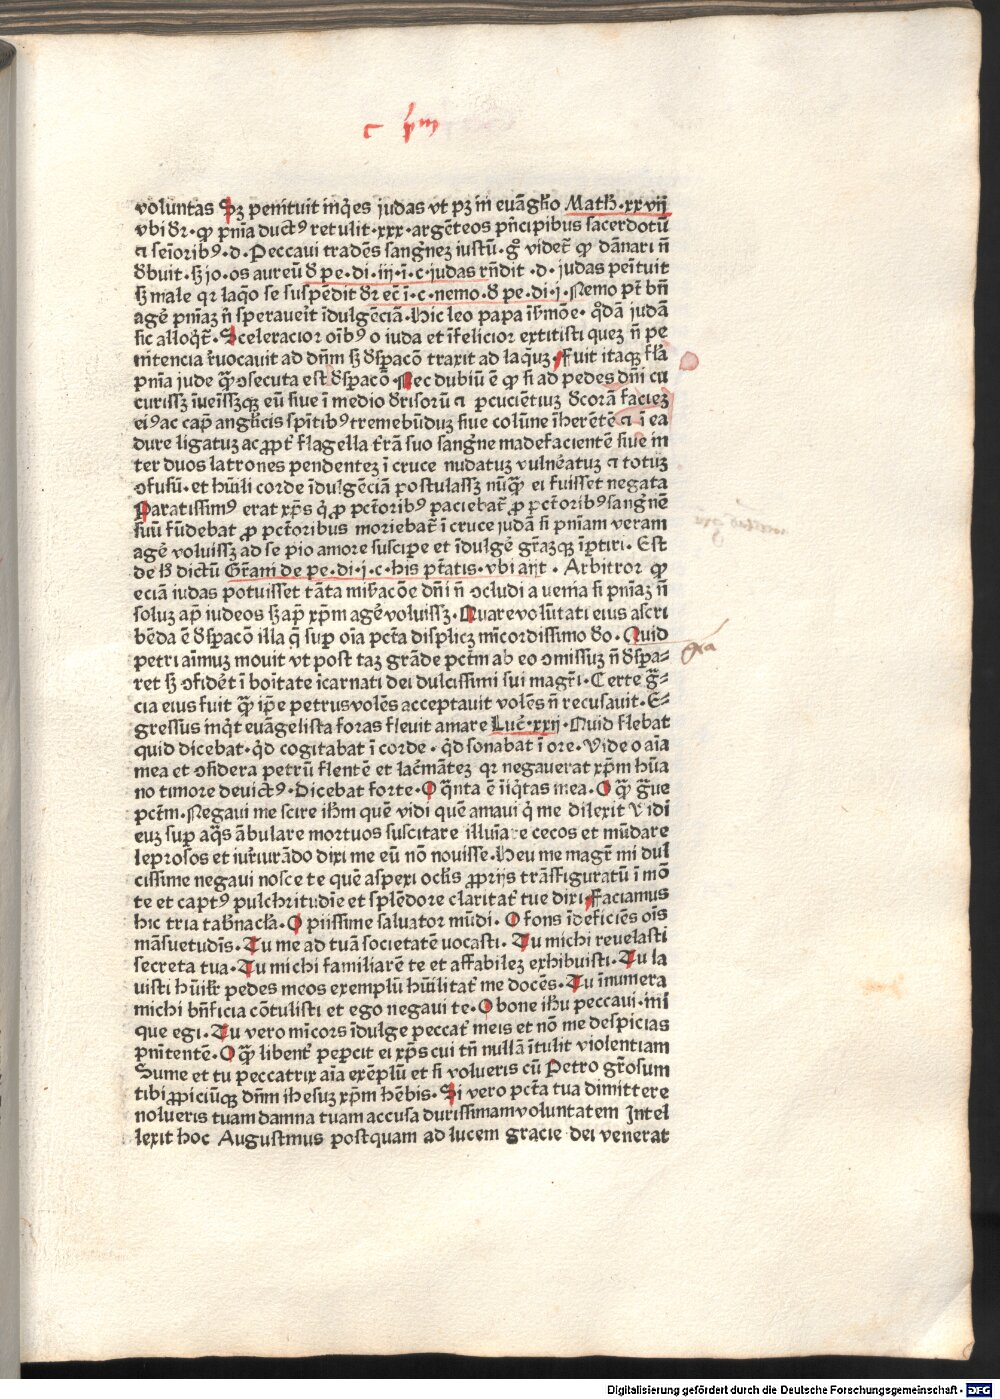 c p̄m
voluntas Sꝫ penituit inq̄es iudas vt pꝫ in euāgl̓io Math̓·xxvij
vbi dr̄· ꝙ pn̄ia duct⁹ retulit·xxx·argēteos pn̄cipibus sacerdotū
⁊ sēiorib⁹·d·Peccaui tradēs sangnēꝫ iustū·gͦ videt̄ ꝙ dānari n̄
dbuit·sꝫ jo·os aureū d̓ pe·di·iij·ī·c·iudas rn̄dit·d·iudas peīituit
sꝫ male qr laq̄o se suspēdit dr̄ ec̄ ī·c·nemo·d̓ pe·di·j·Nemo pt̄ bn̄
agē pn̄iaꝫ n̄ sperauerit īdulgēciā·Hic leo papa ī s̓mōe·qdā iudā
sic alloq̄t̄·Sceleracior oīb⁹ o iuda et īfelicior extitisti queꝫ n̄ pe
nitencia r̄uocauit ad dn̄m sꝫ dspacō traxit ad laq̄uꝫ·Fuit itaqꝫ fl̄a
pn̄ia iude q̄ꝯsecuta est dspacō·Nec dubiū ē ꝙ si ad pedes dn̄i cu
curissꝫ īueīssꝫqꝫ eū siue ī medio drisorū ⁊ pcucientiuꝫ dcorā facieꝫ
ei⁹ac cap̄ angl̓icis sp̄itib⁹tremebūduꝫ siue colūne īherētē ⁊ ī ea
dure ligatuꝫ ac ꝓpt̄ flagella t̄rā suo sangn̄e madefacientē siue in
ter duos latrones pendenteꝫ ī cruce nudatuꝫ vulnēatuꝫ ⁊ totuꝫ
ꝯfusū·et hūili corde īdulgēciā postulassꝫ nūq̄ ei fuisset negata
Paratissim⁹ erat xp̄s q̓ ꝓ pct̄orib⁹ paciebat̄ ꝓ pct̄orib⁹sangnē
suū fūdebat ꝓ pct̄oribus moriebat̄ ī cruce iudā si pn̄iam veram
agē voluissꝫ ad se pio amore suscipe et īdulgē gr̄aꝫqꝫ īptiri·Est
de h̓ dictū Gr̄ani de pe·di·j·c·his pt̄atis·vbi ait·Arbitror ꝙ
eciā iudas potuisset tāta mis̓acōe dn̄i n̄ ꝯcludi a uenia si pn̄iaꝫ n̄
soluꝫ ap̄ iudeos sꝫ ap̄ xp̄m agē voluissꝫ·Quare volūtati eius ascri
bēda ē dspacō illa q̄ sup oīa pct̄a displicꝫ mīcordissimo do·Quid
petri aīmuꝫ mouit vt post taꝫ grāde pct̄m ab eo ꝯmissuꝫ n̄ dspa⸗
ret sꝫ ꝯfidēt ī boītate īcarnati dei dulcissimi sui magr̄i·Certe gr̄⸗
cia eius fuit q̄ ip̄e petrusvolēs acceptauit volēs n̄ recusauit·E⸗
gressus inq̓t euāgelista foras fleuit amare Luc̄·xxij·Quid flebat
quid dicebat·q̓d cogitabat ī corde·q̓d sonabat ī ore·Vide o aīa
mea et ꝯsidera petrū flentē et lac̄māteꝫ qr negauerat xp̄m hūa
no timore deuict⁹·Dicebat forte·O q̄nta ē īiq̓tas mea·O q̄ gr̄ue
pct̄m·Negaui me scire ih̄m quē vidi quē amaui q̓ me dilexit Vidi
euꝫ sup aq̄s ābulare mortuos suscitare illuīare cecos et mūdare
leprosos et iur̄iurādo dixi me eū nō nouisse·Heu me magr̄ mi dul
cissime negaui nosce te quē aspexi oclīs ꝓprijs trāsfiguratū ī mō
te et capt⁹ pulchritudīe et splēdore claritat̄ tue dixi Faciamus
hic tria tab̓nacl̄a·O piissime saluator mūdi·O fons īdeficiēs oīs
māsuetudīs·Tu me ad tuā societatē uocasti·Tu michi reuelasti
secreta tua·Tu michi familiarē te et affabileꝫ exhibuisti·Tu la
uisti hūilit̄ pedes meos exemplū hūilitat̄ me docēs·Tu īnumera
michi bn̄ficia cōtulisti et ego negaui te·O bone ih̄u peccaui·ini
que egi·Tu vero mīcors īdulge peccat̄ meis et nō me despicias
pnītentē·O q̄ libent̄ pepcit ei xp̄s cui tn̄ nullā ītulit violentiam
Sume et tu peccatrix aīa exēplū et si volueris cū Petro gr̄osum
tibi ꝓpiciūqꝫ dn̄m ihesuꝫ xp̄m hēbis·Si vero pct̄a tua dimittere
nolueris tuam damna tuam accusa durissimamvoluntatem Intel
lexit hoc Augustinus postquam ad lucem gracie dei venerat
gr̄a
Digitalisierung gefördert durch die Deutsche Forschungsgemeinschaft - DFG